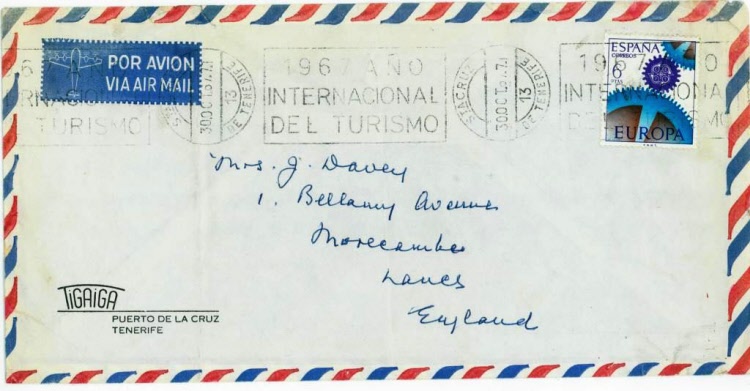 POR AVION
VIA AIR MAIL
STA CRUZ
30 OCT
13
DE TENERIFE
196 AÑO
INTERNACIONAL
DEL TURISMO
STA CRUZ
30 OCT
13
DE TENERIFE
1967
ESPAÑA
CORREOS
6
PTAS
EUROPA
Mrs. J. Davey
1. Bellamy Avenue
Morecambe
Lancs
England
TIGAIGA
PUERTO DE LA CRUZ
TENERIFE